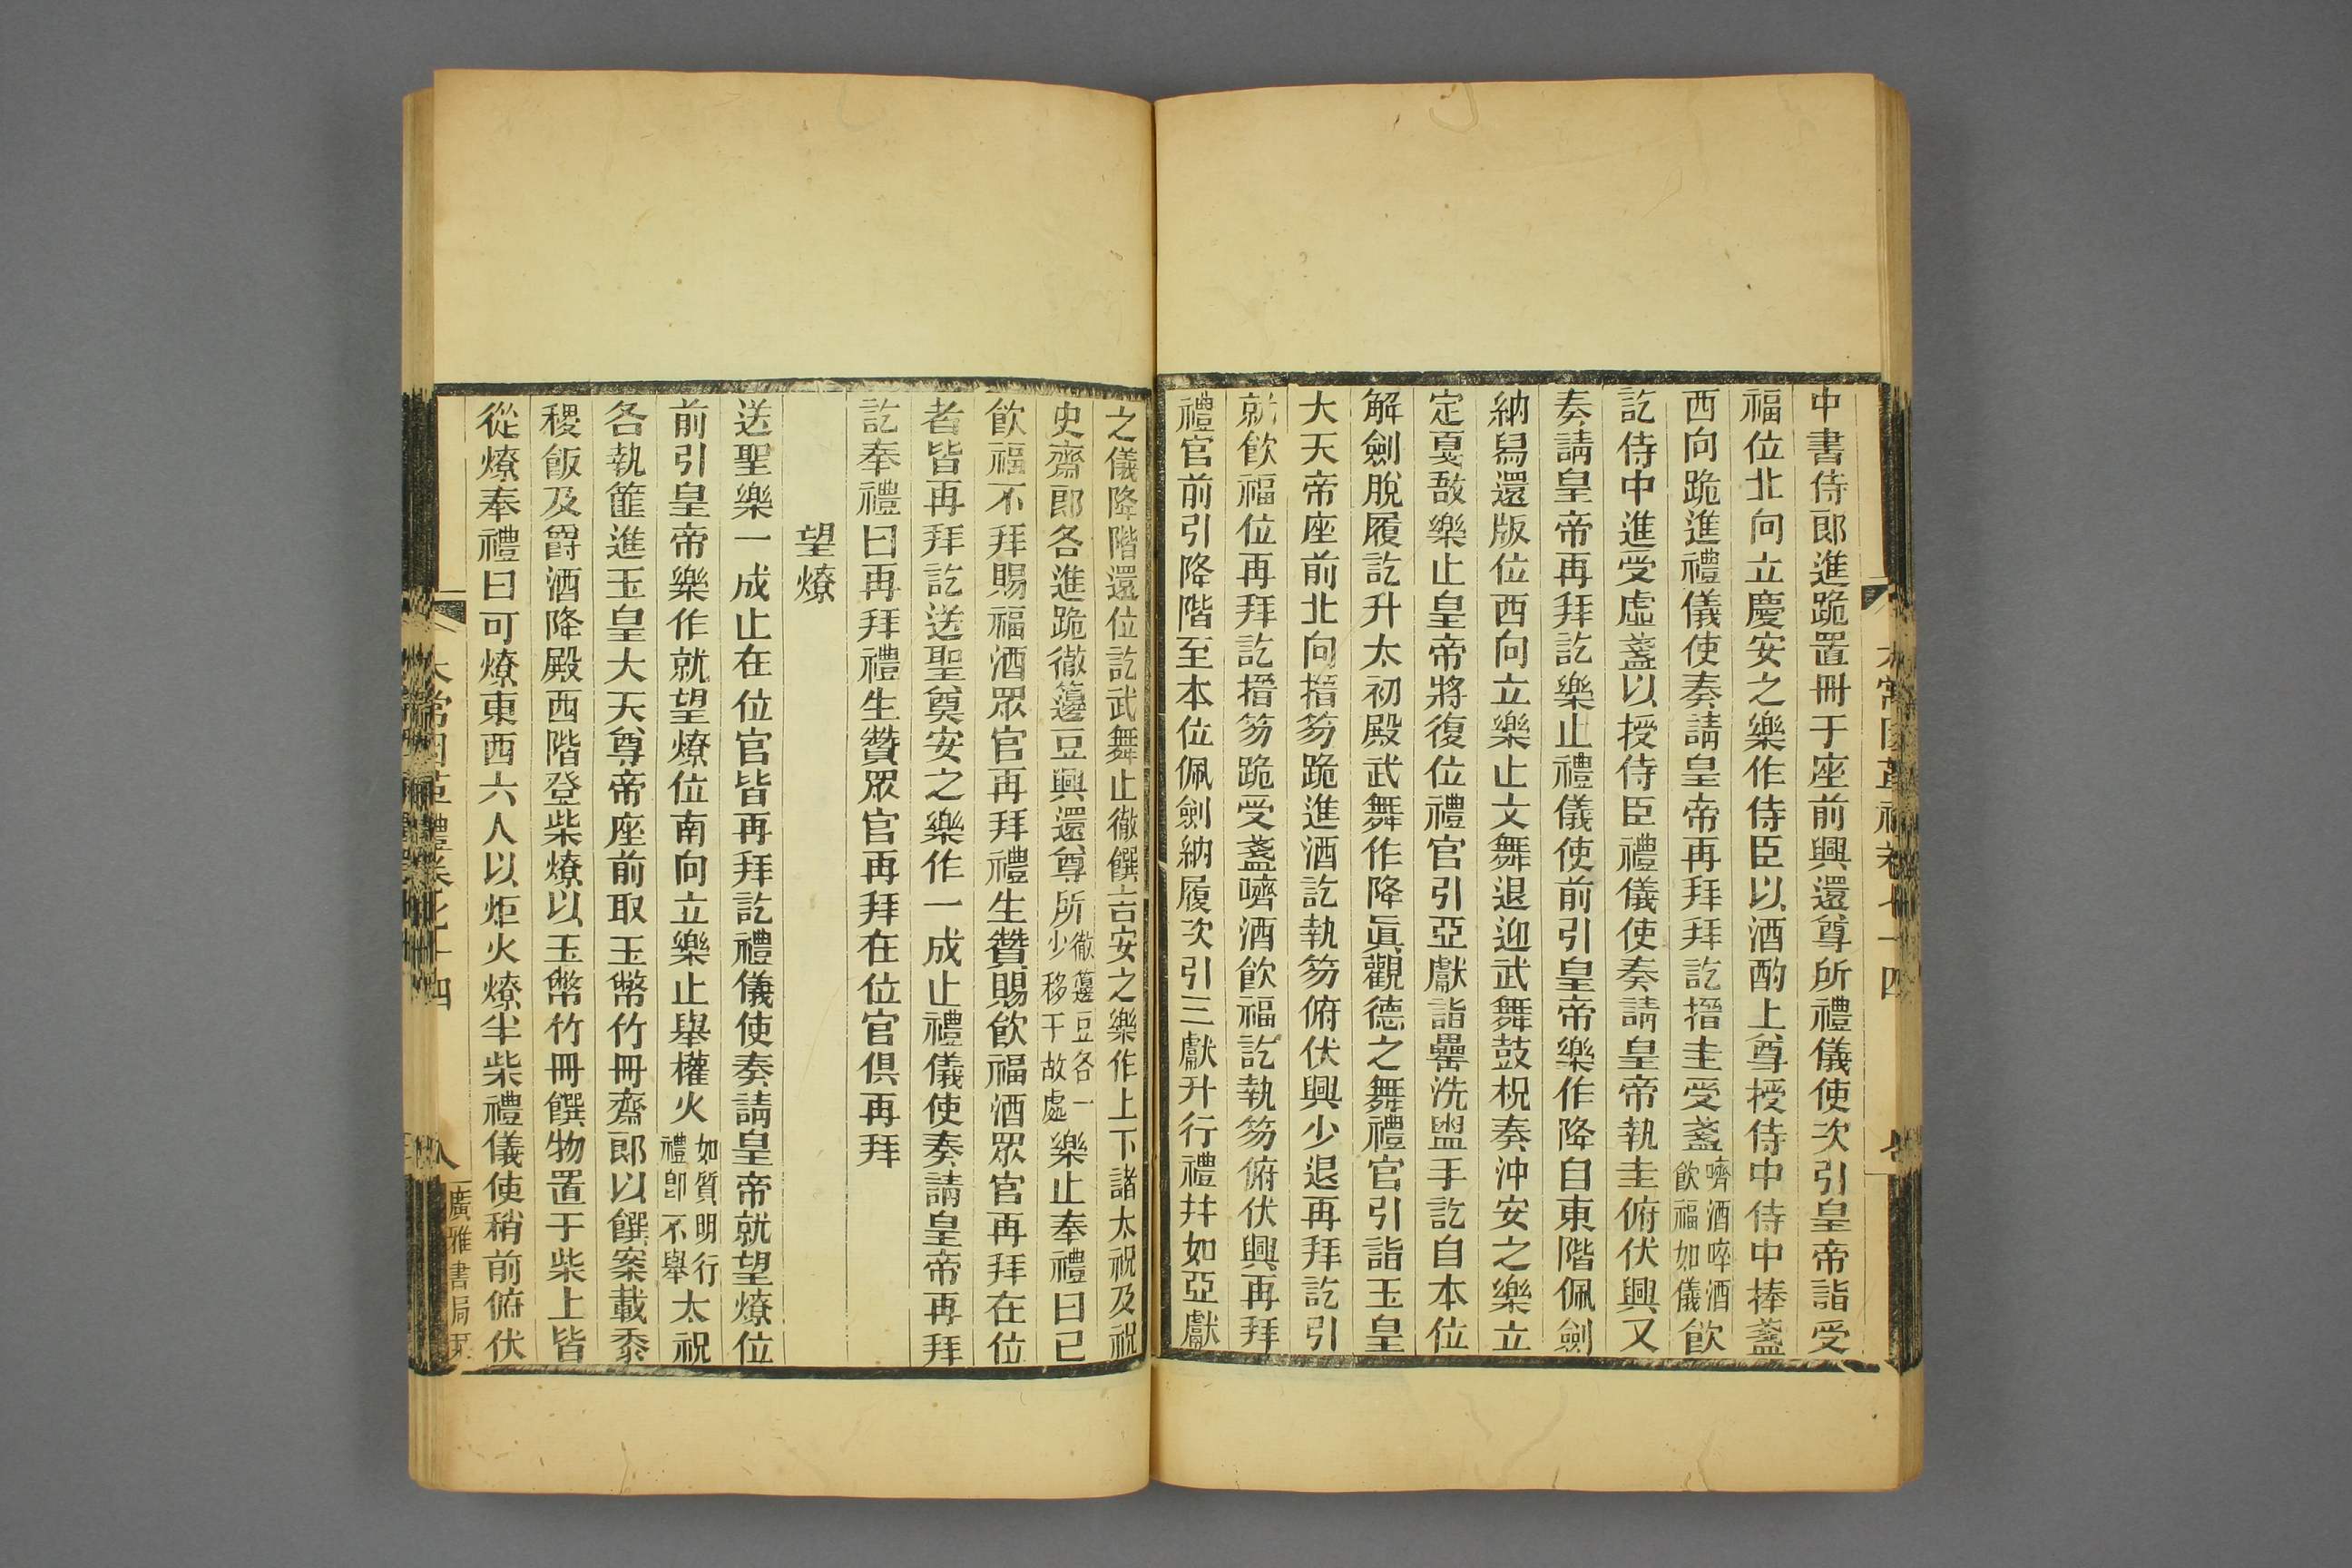 中書侍郎進跪置冊于座前興還尊所禮儀使次引皇帝詣受
福位北向立慶安之樂作侍臣以酒酌上尊授侍中侍中捧盞
西向跪進禮儀使奏請皇帝再拜拜訖搢圭受盞嚌酒啐酒飲福如儀飲
訖侍中進受虛盞以授侍臣禮儀使奏請皇帝執圭俯伏興又
奏請皇帝再拜訖樂止禮儀使前引皇帝樂作降自東階佩劍
納舄還版位西向立樂止文舞退迎武舞鼓柷奏沖安之樂立
定戛敔樂止皇帝將復位禮官引亞獻詣罍洗盥手訖自本位
解劍脫履訖升太初殿武舞作降眞觀德之舞禮官引詣玉皇
大天帝座前北向搢笏跪進酒訖執笏俯伏興少退再拜訖引
就飲福位再拜訖搢笏跪受盞嚌酒飲福訖執笏俯伏興再拜
禮官前引降階至本位佩劍納履次引三獻升行禮幷如亞獻
之儀降階還位訖武舞止徹饌吉安之樂作上下諸太祝及祝
史齋郎各進跪徹籩豆興還尊所徹籩豆各一少移于故處樂止奉禮曰已
飲福不拜賜福酒眾官再拜禮生贊賜飲福酒眾官再拜在位
者皆再拜訖送聖奠安之樂作一成止禮儀使奏請皇帝再拜
訖奉禮曰再拜禮生贊眾官再拜在位官俱再拜
望燎
送聖樂一成止在位官皆再拜訖禮儀使奏請皇帝就望燎位
前引皇帝樂作就望燎位南向立樂止舉權火如質明行禮卽不舉太祝
各執篚進玉皇大天尊帝座前取玉幣竹冊齋郎以饌案載黍
稷飯及爵酒降殿西階登柴燎以玉幣竹冊饌物置于柴上皆
從燎奉禮曰可燎東西六人以炬火燎半柴禮儀使稍前俯伏
太常因革禮卷七十四
八
廣雅書局栞